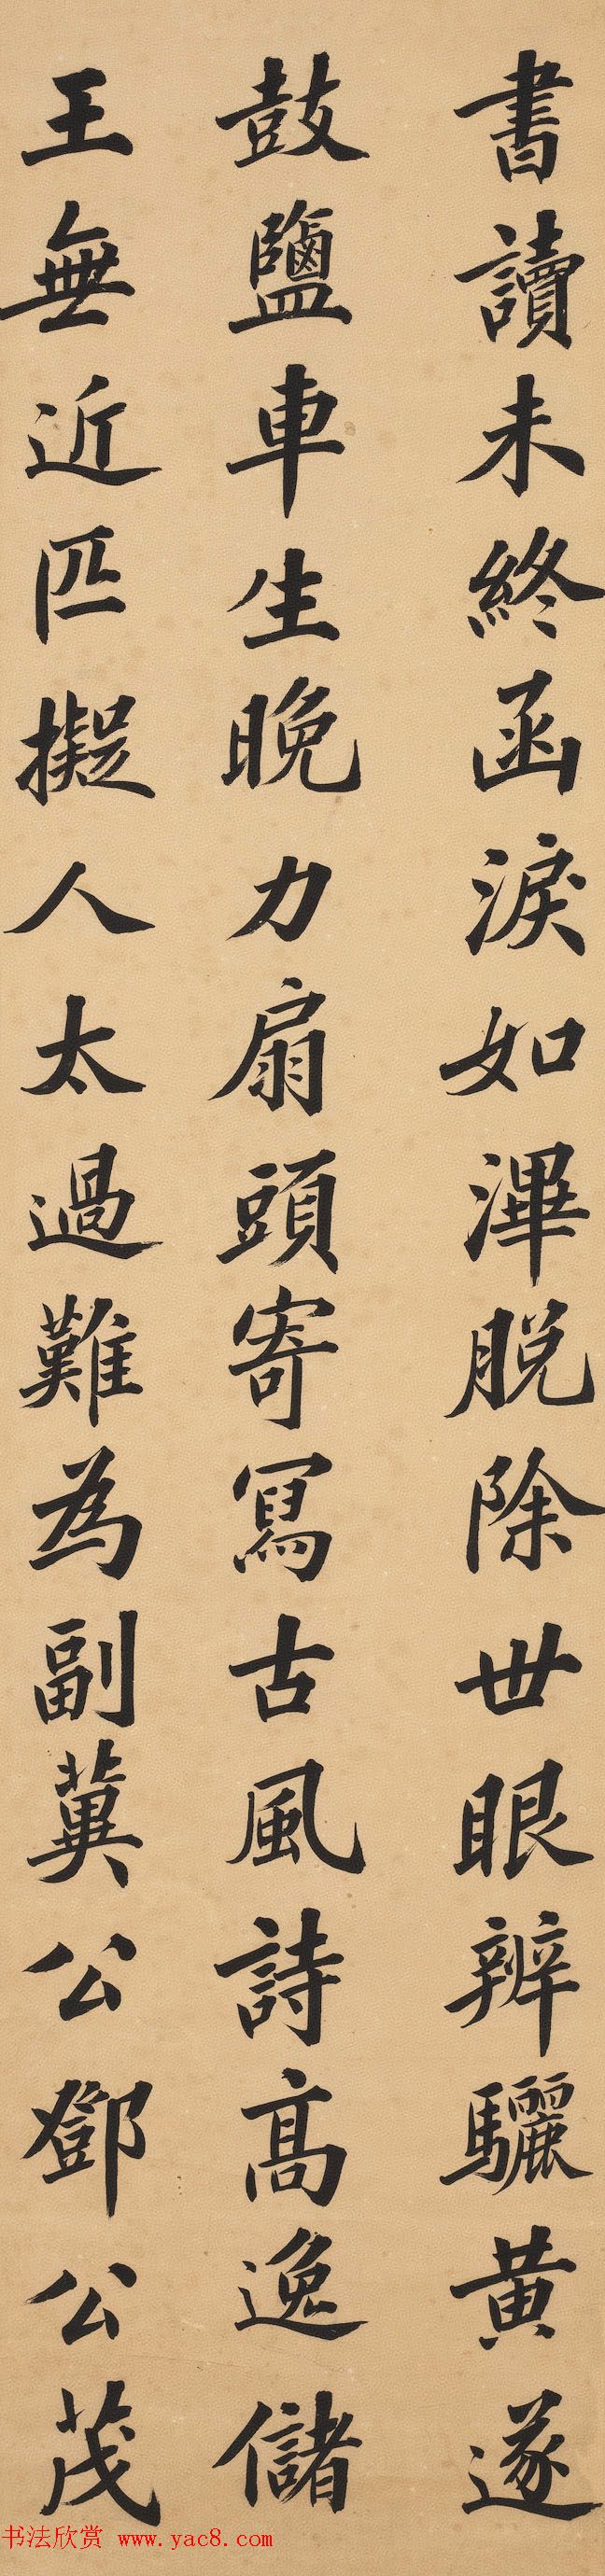 書讀未終函淚如潷脫除世眼辨驪黃遂
鼓鹽車生晚力扇頭寄寫古風詩高逸儲
王無近匹擬人太過難為副冀公鄧公茂
书法欣赏 www.yac8.com